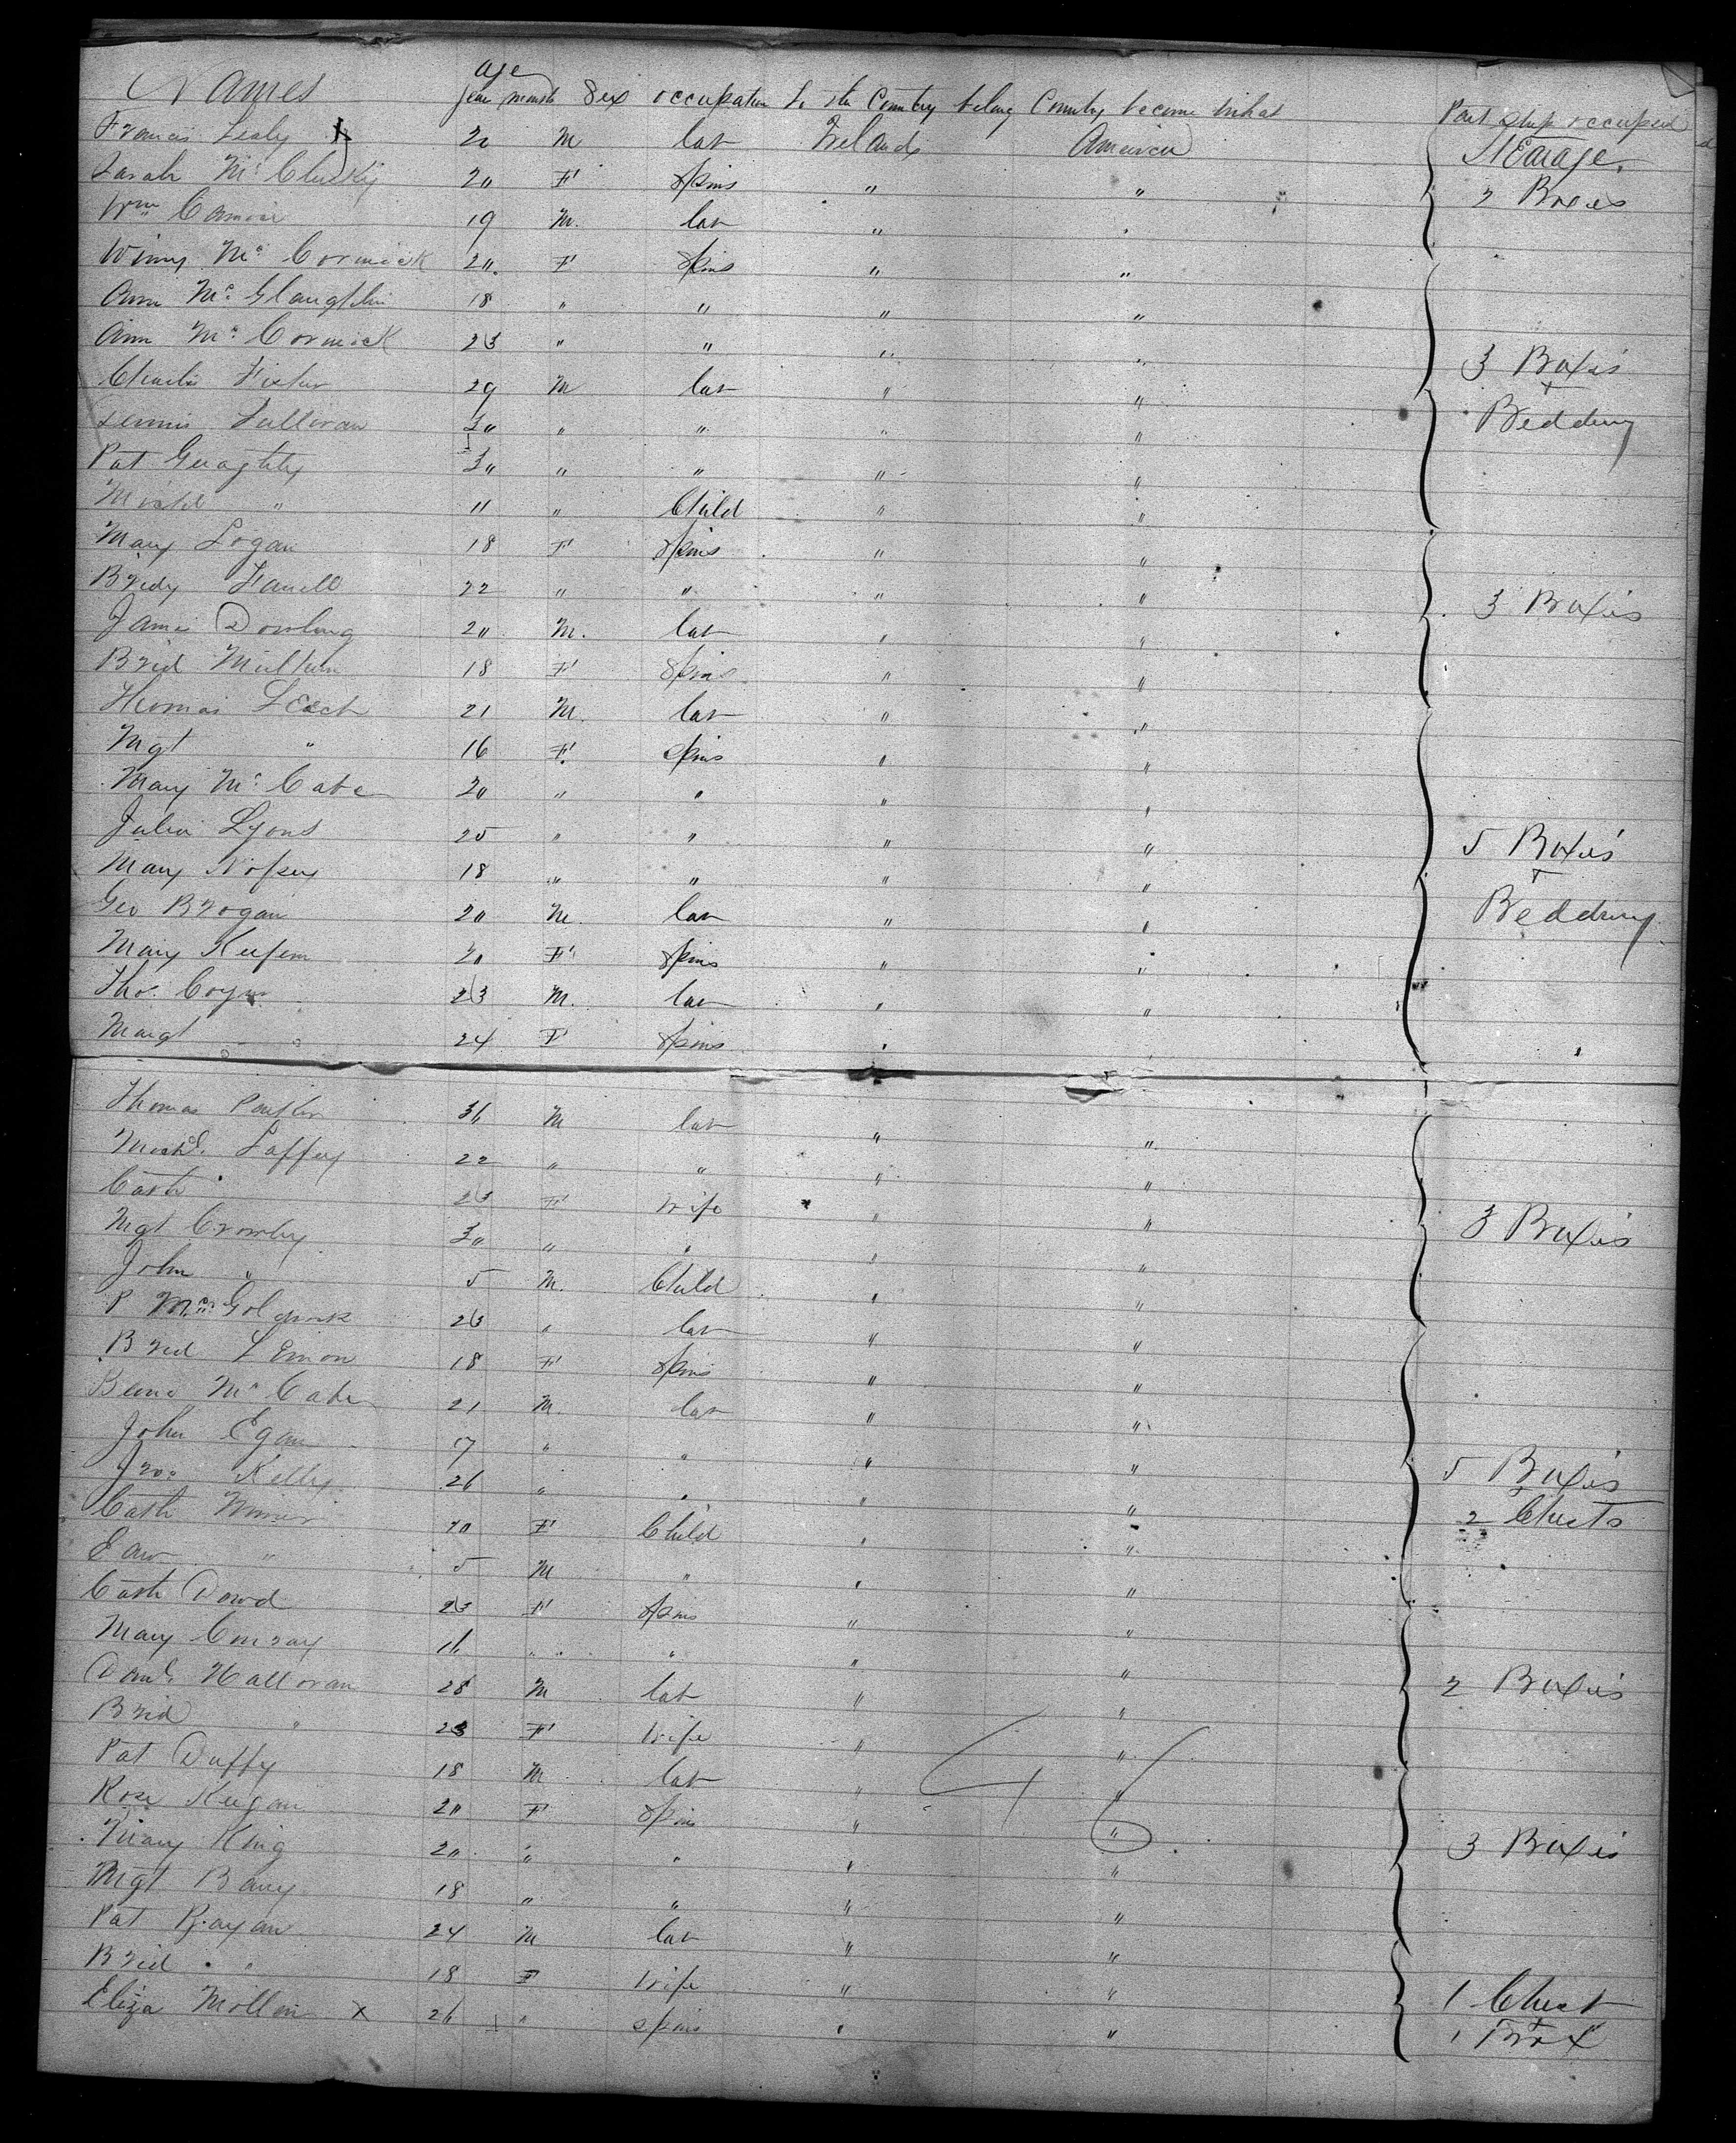 Names age Year month Sex occupation to the Country belong Country become inhat Part Ship occupied
Francis Lealy 20 M lab Ireland America STEarage
Sarah Mc Clusky 20 F Spins " " 2 Boxes
Wm 19 M. lab " "
Winny Mc Cormick 20 F Spins " "
Ann Mc Glaughlin 18 " " " "
Ann Mc Cormick 23 " " " " 3 Boxes
Charlie 29 M lab " " +
Dennis Sullivan 30 " " " " Bedding
Pat Geraghty 30 " " " "
Michl " 11 " Child " "
Mary Logan 18 F Spins " "
Bridy Farrell 22 " " " " 3 Boxes
James Dowling 20 M. lab " "
Brid 18 F Spins " "
Thomas LEech 21 M. lab " "
Mgt " 16 F. Spins " "
Mary Mc Cabe 20 " " " "
Julia Lyons 25 " " " " 5 Boxes
Mary 18 " " " " +
Geo Brogan 20 M. lab " " Bedding
Mary 20 F Spins " "
Thos. 23 M. lab " "
Margt " 24 F Spins " "
Thomas 36 M lab " "
Michl. Laffey 22 " " " "
Cath " 23 F Wife " "
Mgt Crowley 30 " " " " 3 Boxes
John " 5 M. Child " "
P McGoldrick 23 " lab " "
Brid 18 F Spins " "
Mc Cabe 21 M. lab " "
John Egan 7 " " " "
Jno. Kelly 26 " " " " 5 Boxes
Cath 10 F Child " " 2 Chests
" 5 M " " "
Cath Dowd 23 F Spins " "
Mary Conray 16 " " " "
Danl. Halloran 28 M lab " " 2 Boxes
Brid " 23 F Wife " "
Pat Duffy 18 M lab " "
Rose Keegan 20 F Spins " "
46
Mary King 20 " " " " 3 Boxes
Mgt Barry 18 " " " "
Pat Rayan 24 M lab " "
Brid " 18 F Wife " " 1 Chest
Eliza Mollin x 26 " Spins " " + 1 Box